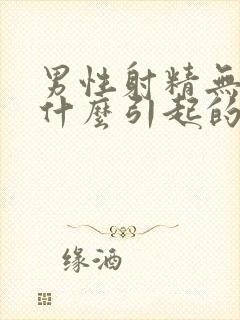 男性射精無
什麼引起的
缘酒